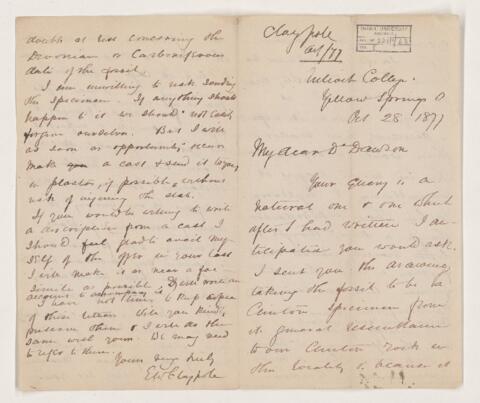 Claypole
Oct/77
Antioch College.
Yellow Springs O
Oct 28 1877
My dear Dr Dawson
Your query is a
natural one & one which
after I had written I an-
ticipated you would ask.
I sent you the drawing
taking the fossil to be a
Clinton specimen from
its general resemblance
to our Clinton rock in
this locality & because it
doubts at rest concerning the
Devonian or Carboniferous
date of the fossil.
I am unwilling to risk sending
the specimen. If anything should
happen to it we should not easily
forgive ourselves. But I will
as soon as opportunity occurs
make you a cast & send it to you
in plaster if possible, without
risk of injuring the slab.
If you would be willing to write
a description from a cast I
should feel glad to avail my-
self of the offer in your case
I will make it as near a fac-
simile as possible & will write an
account to accompany it.
I have not time to keep copies
of these letters. Will you kindly
preserve them & I will do the
same with yours. We may need
to refer to them.
Yours very truly
E W Claypole